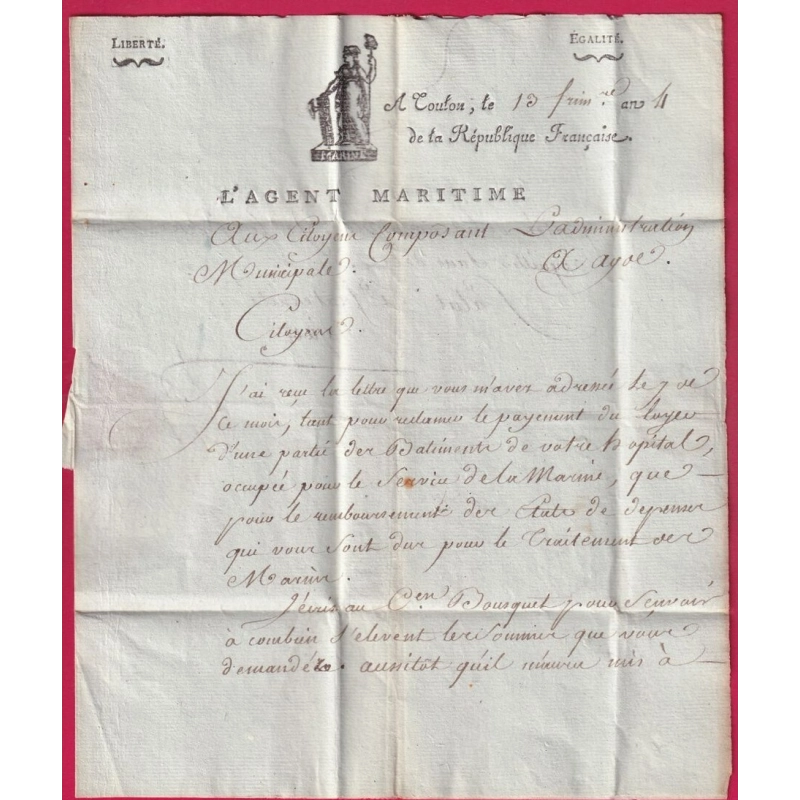 LIBERTÉ.
ÉGALITÉ.
MARINE
A Toulon, le 13 frim.re an 4
de la République Française.
L'AGENT MARITIME
Aux Citoyens Composant L'administration
Municipale. D'agde.
Citoyens.
J'ai reçu la lettre que vous m'avez adressée le 7 de
ce mois, tant pour reclamer le payement du loyer
d'une partie des Batiments de votre hopital,
occupée pour le Service de la Marine, que
pour le remboursement des Etats de depenses
qui vous sont dus pour le Traitement des
Marins.
J'écris au C.en Bousquet pour Sçavoir
à combien s'elevent les Sommes que vous
demandéz. aussitot qu'il m'aura mis à